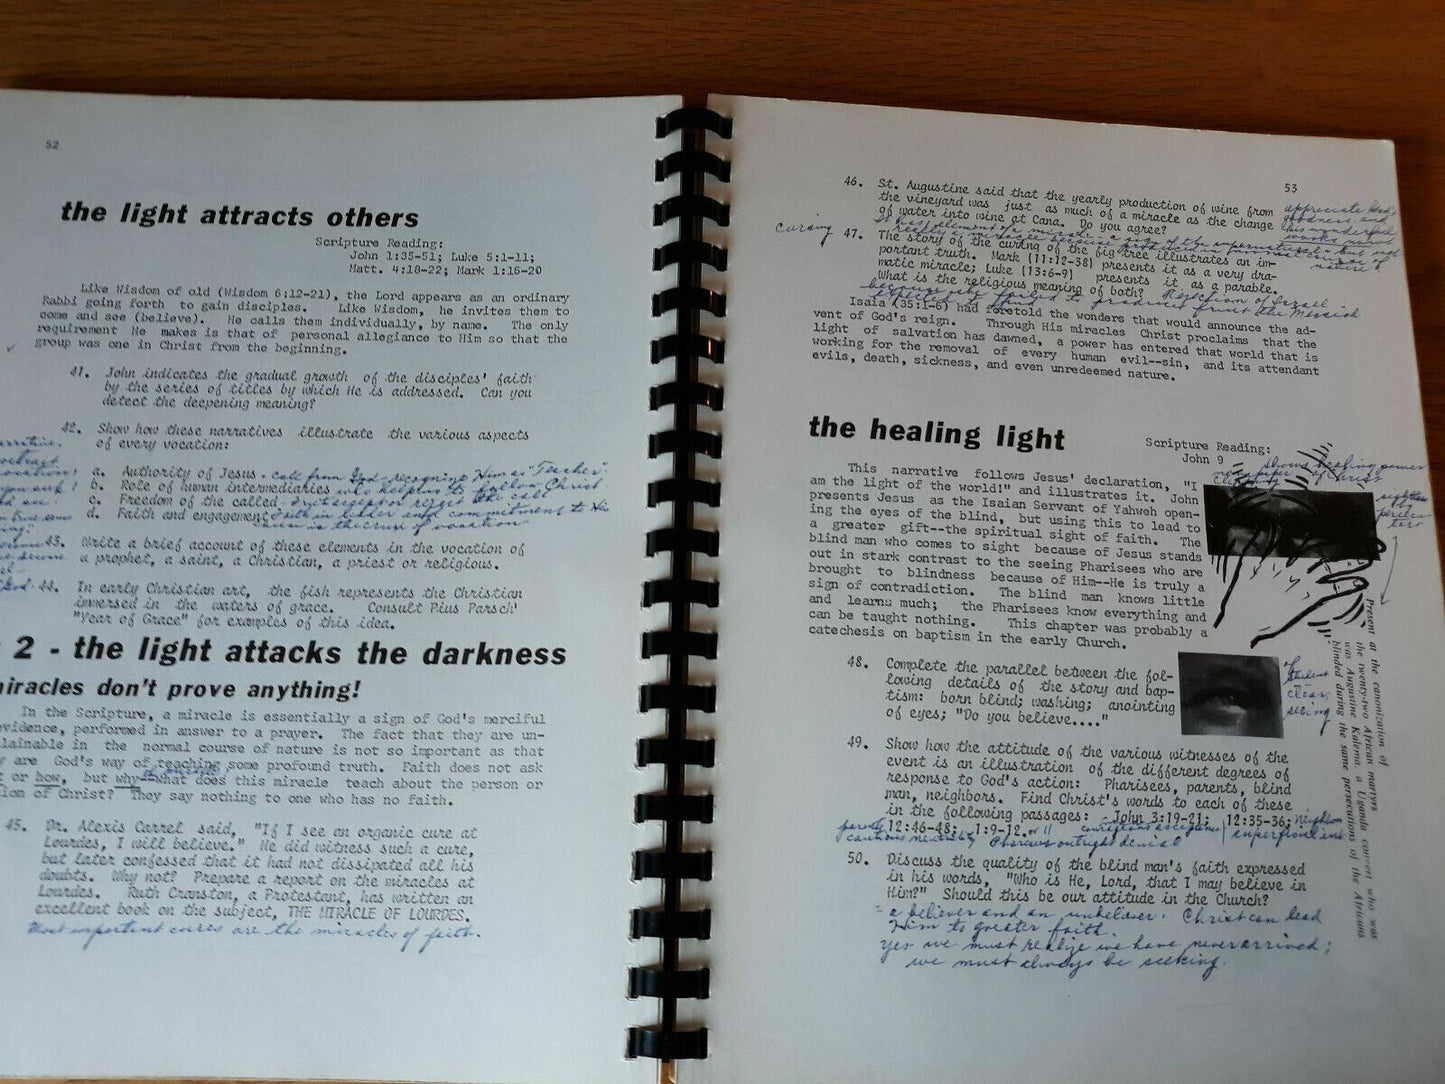 52
the light attracts others
Scripture Reading:
John 1:35-51; Luke 5:1-11;
Matt. 4:18-22; Mark 1:16-20
Like Wisdom of old (Wisdom 6:12-21), the Lord appears as an ordinary
Rabbi going forth to gain disciples. Like Wisdom, he invites them to
come and see (believe). He calls them individually, by name. The only
requirement He makes is that of personal allegiance to Him so that the
group was one in Christ from the beginning.
41. John indicates the gradual growth of the disciples' faith
by the series of titles by which He is addressed. Can you
detect the deepening meaning?
42. Show how these narratives illustrate the various aspects
of every vocation:
a. Authority of Jesus - call from God - recognizing Him as "Teacher"
b. Role of human intermediaries who help us to follow Christ
c. Freedom of the called, the call
d. Faith and engagement Faith in and commitment to His
is the crux of vocation
43. Write a brief account of these elements in the vocation of
a prophet, a saint, a Christian, a priest or religious.
44. In early Christian art, the fish represents the Christian
immersed in the waters of grace. Consult Pius Parsch'
"Year of Grace" for examples of this idea.
2 - the light attacks the darkness
miracles don't prove anything!
In the Scripture, a miracle is essentially a sign of God's merciful
ovidence, performed in answer to a prayer. The fact that they are un-
lainable in the normal course of nature is not so important as that
y are God's way of teaching some profound truth. Faith does not ask
t or how, but why--what does this miracle teach about the person or
ion of Christ? They say nothing to one who has no faith.
45. Dr. Alexis Carrel said, "If I see an organic cure at
Lourdes, I will believe." He did witness such a cure,
but later confessed that it had not dissipated all his
doubts. Why not? Prepare a report on the miracles at
Lourdes. Ruth Cranston, a Protestant, has written an
excellent book on the subject, THE MIRACLE OF LOURDES.
Most important cures are the miracles of faith.
53
46. St. Augustine said that the yearly production of wine from
the vineyard was just as much of a miracle as the change
of water into wine at Cana. Do you agree?
appreciate God's
goodness and
his wonderful
works
nature
cursing
47. The story of the curing of the fig tree illustrates an im-
portant truth. Mark (11:12-38) presents it as a very dra-
matic miracle; Luke (13:6-9) presents it as a parable.
What is the religious meaning of both? Rejection of Israel -
failed to produce fruit the Messiah
Isaia (35:1-6) had foretold the wonders that would announce the ad-
vent of God's reign. Through His miracles Christ proclaims that the
light of salvation has dawned, a power has entered that world that is
working for the removal of every human evil--sin, and its attendant
evils, death, sickness, and even unredeemed nature.
the healing light
Scripture Reading:
John 9
shows healing power
of Christ
This narrative follows Jesus' declaration, "I
am the light of the world!" and illustrates it. John
presents Jesus as the Isaian Servant of Yahweh open-
ing the eyes of the blind, but using this to lead to
a greater gift--the spiritual sight of faith. The
blind man who comes to sight because of Jesus stands
out in stark contrast to the seeing Pharisees who are
brought to blindness because of Him--He is truly a
sign of contradiction. The blind man knows little
and learns much; the Pharisees know everything and
can be taught nothing. This chapter was probably a
catechesis on baptism in the early Church.
Present at the canonization of
the twenty-two African martyrs
was Augustine Kalemna, a Uganda convert who was
blinded during the same persecutions of the Africans
48. Complete the parallel between the fol-
lowing details of the story and bap-
tism: born blind; washing; anointing
of eyes; "Do you believe...."
clear,
seeing
49. Show how the attitude of the various witnesses of the
event is an illustration of the different degrees of
response to God's action: Pharisees, parents, blind
man, neighbors. Find Christ's words to each of these
in the following passages: John 3:19-21; 12:35-36;
12:46-48; 1:9-12.
parents
outright denial
50. Discuss the quality of the blind man's faith expressed
in his words, "Who is He, Lord, that I may believe in
Him?" Should this be our attitude in the Church?
= a believer and an unbeliever. Christ can lead
Him to greater faith.
yes we must realize we have never arrived;
we must always be seeking.